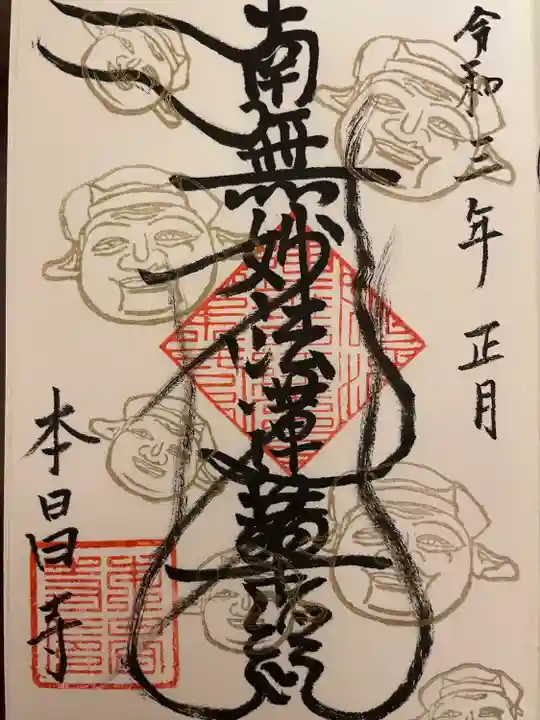 令和三年 正月
南無妙法蓮華経
本昌寺